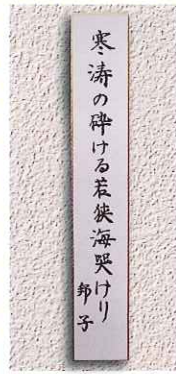 寒涛の砕ける若狭海哭けり
邦子